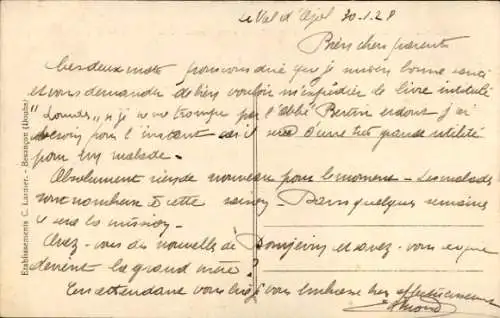 Le Val d'Ajol 30-1-28
Biens chers parents
Ces deux mots pour vous dire que je suis en bonne santé
et vous demander de bien vouloir m'expédier le livre intitulé
"Lourdes" si je ne me trompe par l'abbé Bertin et dont j'ai
besoin pour l'instant car il sera d'une très grande utilité
pour les malades -
Absolument rien de nouveau pour le moment - Les malades
sont nombreux à cette saison. Dans quelques semaines
la mission -
Avez-vous des nouvelles de Domjevin et savez-vous ce que
devient la grand mère ?
En attendant vous lire je vous embrasse bien affectueusement
Etablissements C. Lardier. - Besançon (Doubs)